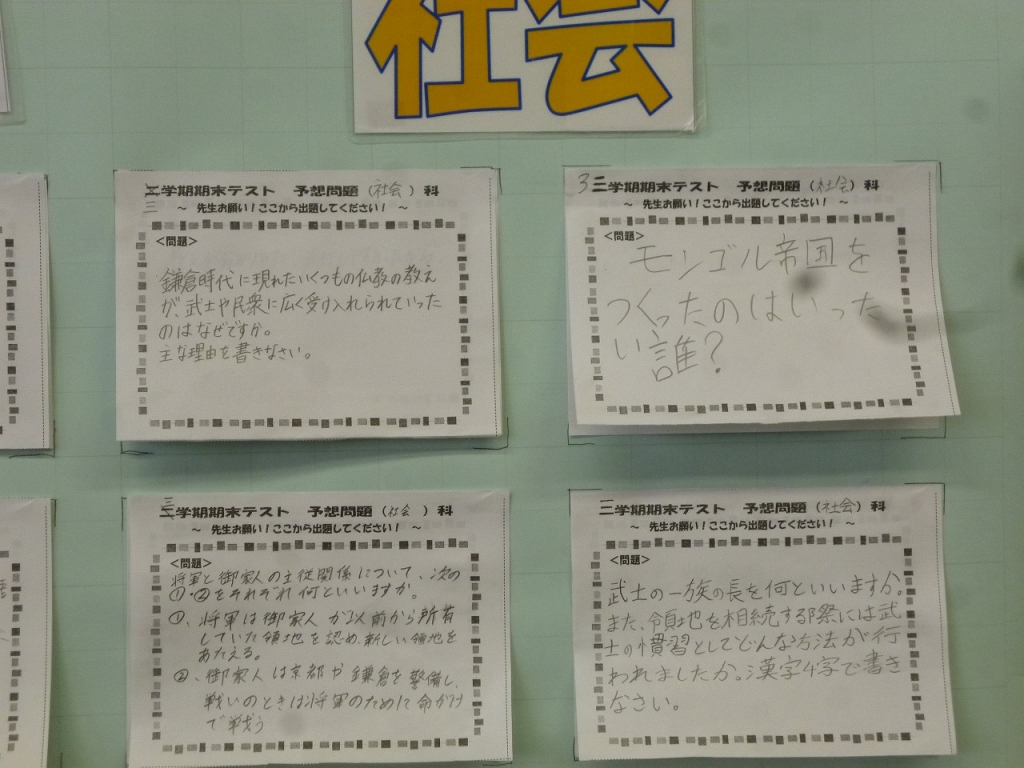 社会
三学期期末テスト 予想問題(社会)科
三
～ 先生お願い!ここから出題してください! ～
<問題>
鎌倉時代に現れたいくつもの仏教の教え
が、武士や民衆に広く受け入れられていった
のはなぜですか。
主な理由を書きなさい。
3 二学期期末テスト 予想問題(社会)科
～ 先生お願い!ここから出題してください! ～
<問題>
モンゴル帝国を
つくったのはいった
い誰?
三学期期末テスト 予想問題(社会)科
～ 先生お願い!ここから出題してください! ～
<問題>
将軍と御家人の主従関係について、次の
①・②をそれぞれ何といいますか。
①、将軍は御家人が以前から所有
していた領地を認め、新しい領地を
あたえる。
②、御家人は京都や鎌倉を警備し、
戦いのときは将軍のために命がけ
で戦う
三学期期末テスト 予想問題(社会)科
～ 先生お願い!ここから出題してください! ～
<問題>
武士の一族の長を何といいますか。
また、領地を相続する際には武
士の慣習としてどんな方法が行
われましたか。漢字4字で書き
なさい。